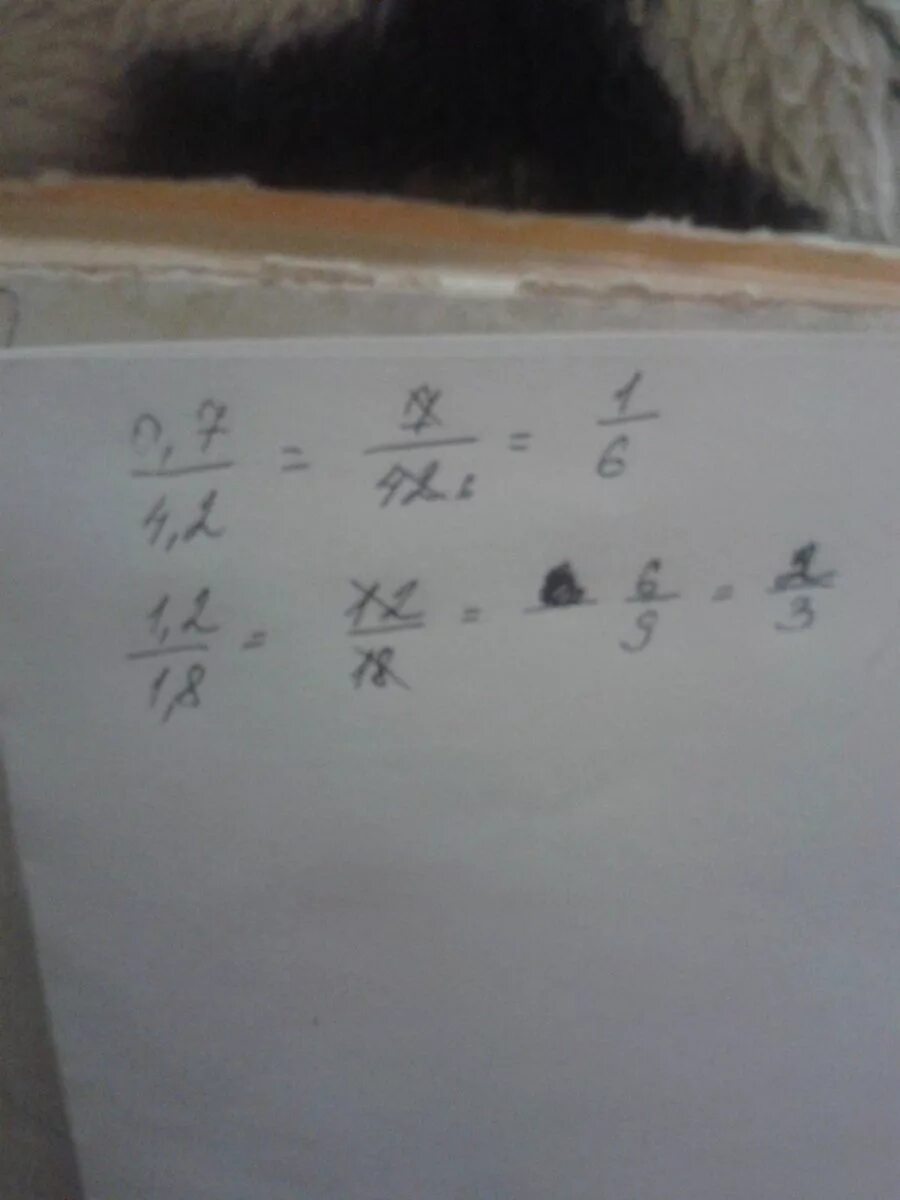 0,7/4,2 = 7/42 6 = 1/6
1,2/1,8 = 12/18 = 6/9 = 2/3